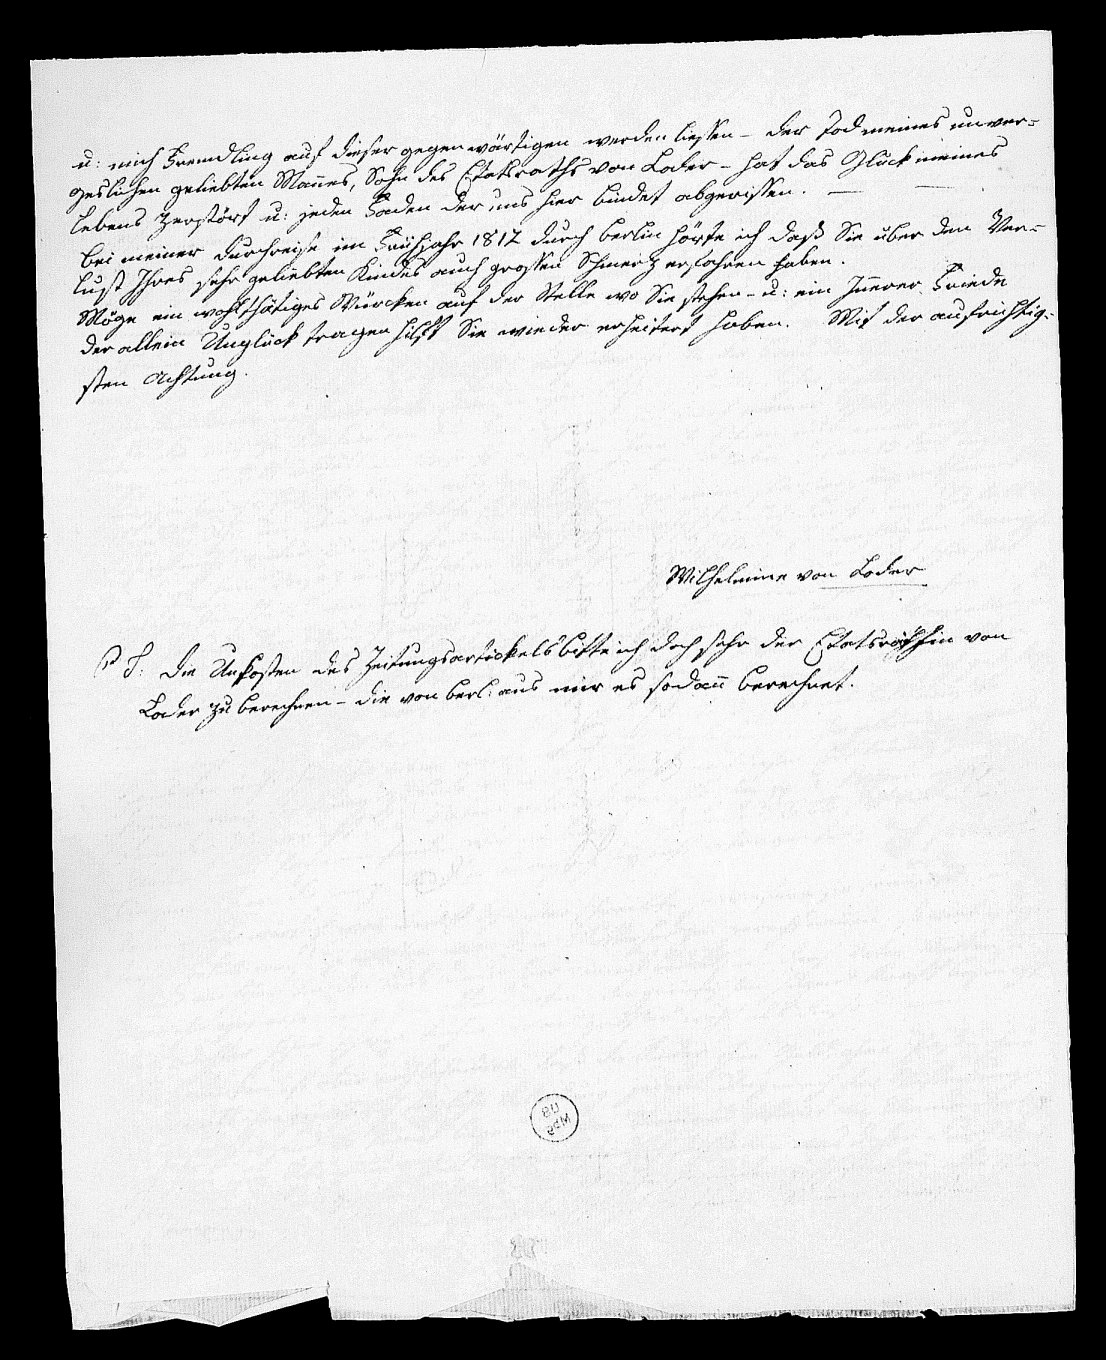 u: mich Fremdling auf dieser gegenwärtigen werden liessen – der Tod meines unver=
geslichen geliebten Mannes, Sohn des Etatsraths von Loder – hat das Glück meines
Lebens zerstört u: jeden Faden der uns hier bindet abgerissen. —
bei meiner Durchreise im Frühjahr 1812 durch berlin hörte ich daß Sie über den Ver=
lust Ihres sehr geliebten Kindes auch grossen Schmerz erfahren haben.
Möge ein wohlthätiges Würcken auf der Stelle wo Sie stehen – u: ein Innerer Friede
der allein Unglück tragen hilft Sie wieder erheitert haben. Mit der aufrichtig=
sten Achtung.
Wilhelmine von Loder
P S: die Unkosten des Zeitungsartickels bitte ich doch sehr der Etatsräthin von
Loder zu berechnen – die von berl: aus mir es sodann berechnet.
UB